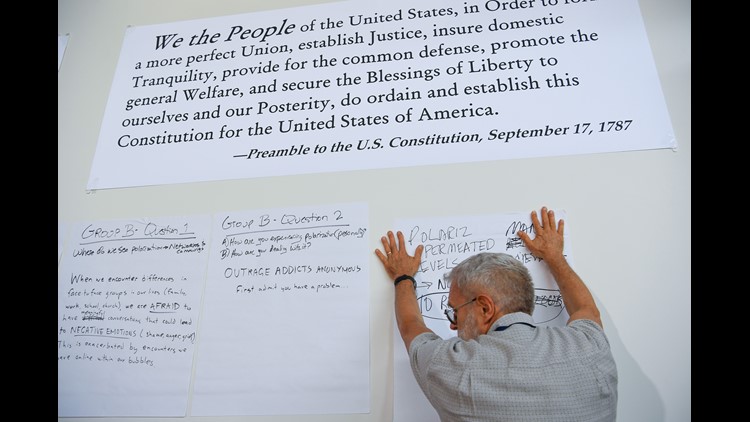 We the People of the United States, in Order to form
a more perfect Union, establish Justice, insure domestic
Tranquility, provide for the common defense, promote the
general Welfare, and secure the Blessings of Liberty to
ourselves and our Posterity, do ordain and establish this
Constitution for the United States of America.
—Preamble to the U.S. Constitution, September 17, 1787
GROUP B - Question 1
Where do we see polarization
When we encounter differences in
face to face groups in our lives (family,
work, school, church), we are AFRAID to
have meaningful conversations that could lead
to NEGATIVE EMOTIONS (shame, anger, grief)
This is exacerbated by encounters we
have online within our bubbles
GROUP B - Question 2
A) How are you experiencing polarization (personally)
B) How are you dealing with it?
OUTRAGE ADDICTS ANONYMOUS
First admit you have a problem...
POLARIZ
PERMEATED
LEVELS